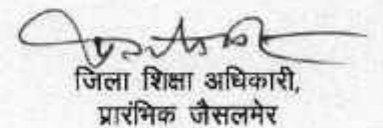 जिला शिक्षा अधिकारी,
प्रारंभिक जैसलमेर